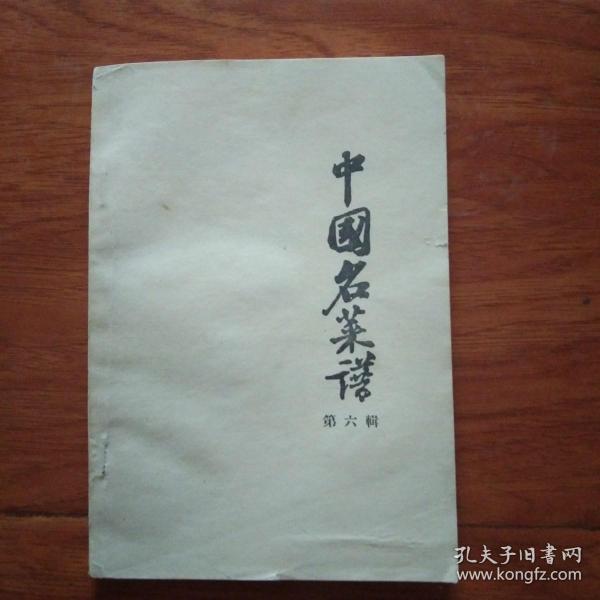 中國名菜譜
第六輯
孔夫子旧书网
www.kongfz.com